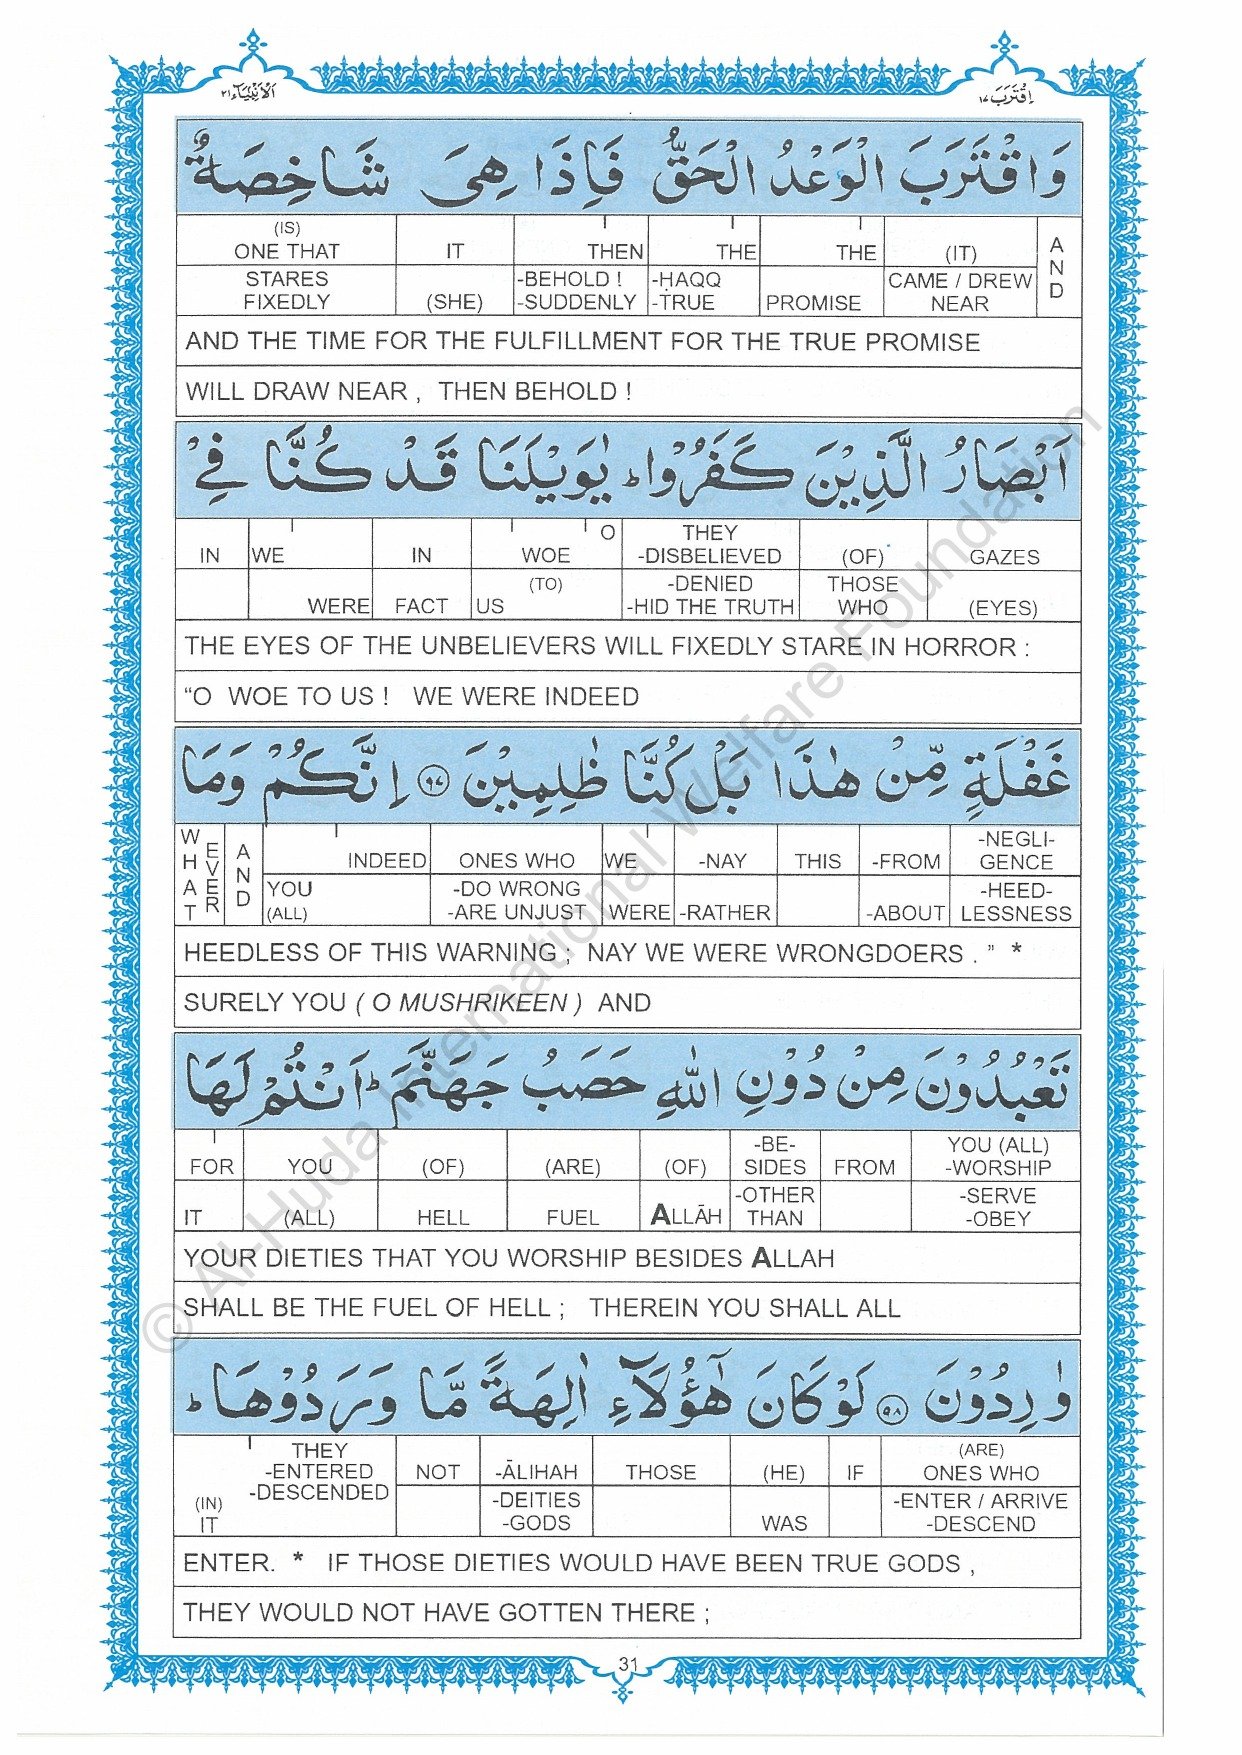 الأنبياء ٢١
اقترب ١٧
وَاقْتَرَبَ الْوَعْدُ الْحَقُّ فَاِذَا هِیَ شَاخِصَةٌ
(IS) ONE THAT | IT | THEN | THE | THE | (IT) | AND
STARES FIXEDLY | (SHE) | -BEHOLD ! -SUDDENLY | -ḤAQQ -TRUE | PROMISE | CAME / DREW NEAR
AND THE TIME FOR THE FULFILLMENT FOR THE TRUE PROMISE
WILL DRAW NEAR , THEN BEHOLD !
اَبْصَارُ الَّذِیْنَ كَفَرُوْا ؕ یٰوَیْلَنَا قَدْ كُنَّا فِیْ
IN | WE | IN | WOE O | THEY -DISBELIEVED | (OF) | GAZES
WERE | FACT | US (TO) | -DENIED -HID THE TRUTH | THOSE WHO | (EYES)
THE EYES OF THE UNBELIEVERS WILL FIXEDLY STARE IN HORROR :
“O WOE TO US ! WE WERE INDEED
غَفْلَةٍ مِّنْ هٰذَا بَلْ كُنَّا ظٰلِمِیْنَ ﴿۹۷﴾ اِنَّكُمْ وَمَا
WHAT EVER | AND | INDEED | ONES WHO | WE | -NAY | THIS | -FROM | -NEGLI-GENCE
YOU (ALL) | -DO WRONG -ARE UNJUST | WERE | -RATHER | -ABOUT | -HEED-LESSNESS
HEEDLESS OF THIS WARNING ; NAY WE WERE WRONGDOERS . ” *
SURELY YOU ( O MUSHRIKEEN ) AND
تَعْبُدُوْنَ مِنْ دُوْنِ اللّٰهِ حَصَبُ جَهَنَّمَ ؕ اَنْتُمْ لَهَا
FOR | YOU | (OF) | (ARE) | (OF) | -BE-SIDES | FROM | YOU (ALL) -WORSHIP
IT | (ALL) | HELL | FUEL | ALLĀH | -OTHER THAN | -SERVE -OBEY
YOUR DIETIES THAT YOU WORSHIP BESIDES ALLAH
SHALL BE THE FUEL OF HELL ; THEREIN YOU SHALL ALL
وٰرِدُوْنَ ﴿۹۸﴾ لَوْ كَانَ هٰۤؤُلَآءِ اٰلِهَةً مَّا وَرَدُوْهَا ؕ
THEY -ENTERED -DESCENDED | NOT | -ĀLIHAH | THOSE | (HE) | IF | (ARE) ONES WHO
(IN) IT | -DEITIES -GODS | WAS | -ENTER / ARRIVE -DESCEND
ENTER. * IF THOSE DIETIES WOULD HAVE BEEN TRUE GODS ,
THEY WOULD NOT HAVE GOTTEN THERE ;
31
© Al-Huda International Welfare Foundation